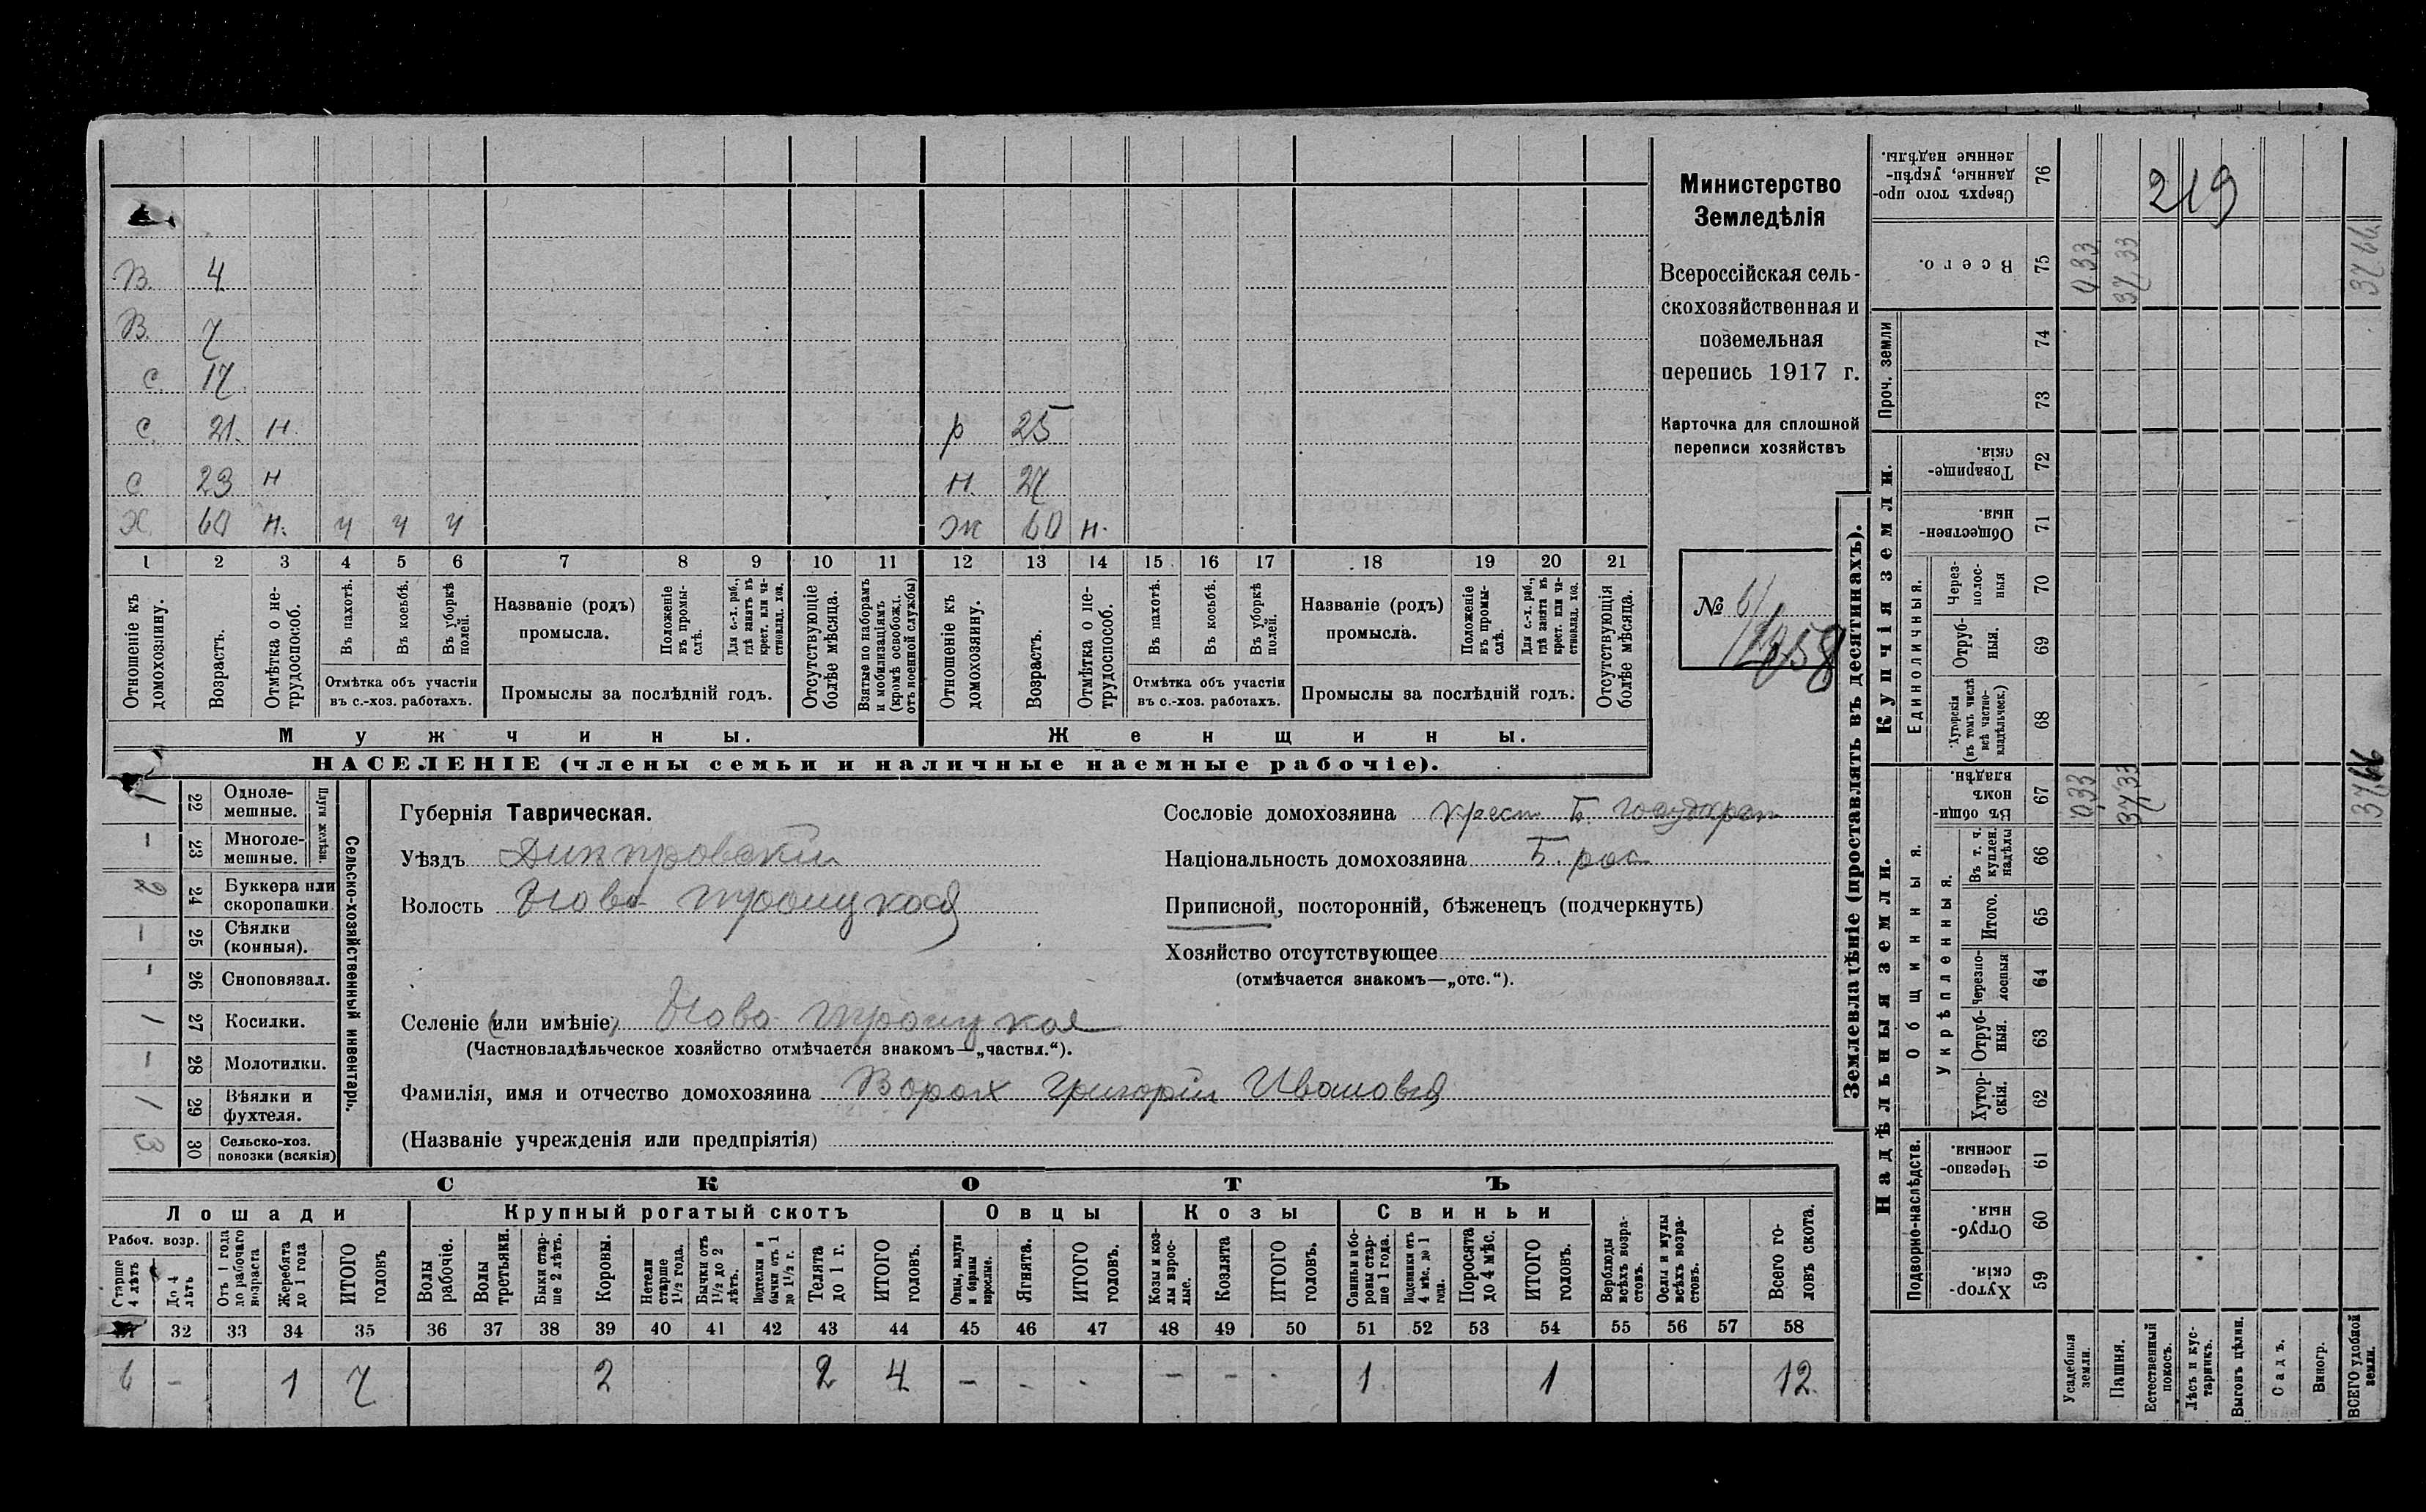 В. 4
В. 7
С. 17
С. 21. н. р 25
С. 23 н н. 27
Х. 60 н. ч ч ч ж 60 н.
1 2 3 4 5 6 7 8 9 10 11 12 13 14 15 16 17 18 19 20 21
Отношеніе къ домохозяину.
Возрастъ.
Отмѣтка о нетрудоспособ.
Въ пахотѣ.
Въ косьбѣ.
Въ уборкѣ полей.
Отмѣтка объ участіи
въ с.-хоз. работахъ.
Названіе (родъ)
промысла.
Положеніе въ промыслѣ.
Для с.-х. раб., гдѣ занятъ въ крест. или частновлад. хоз.
Промыслы за послѣдній годъ.
Отсутствующіе болѣе мѣсяца.
Взятые по наборамъ и мобилизаціямъ (кромѣ освобожд. отъ военной службы)
Отношеніе къ домохозяину.
Возрастъ.
Отмѣтка о нетрудоспособ.
Въ пахотѣ.
Въ косьбѣ.
Въ уборкѣ полей.
Отмѣтка объ участіи
въ с.-хоз. работахъ.
Названіе (родъ)
промысла.
Положеніе въ промыслѣ.
Для с.-х. раб., гдѣ занята въ крест. или частновлад. хоз.
Промыслы за послѣдній годъ.
Отсутствующія болѣе мѣсяца.
Мужчины. Женщины.
НАСЕЛЕНІЕ (члены семьи и наличные наемные рабочіе).
Министерство
Земледѣлія
Всероссійская сель-
скохозяйственная и
поземельная
перепись 1917 г.
Карточка для сплошной
переписи хозяйствъ
№ 61
Сельско-хозяйственный инвентарь.
Плуги желѣзн.
1 22 Однолемешные.
– 23 Многолемешные.
2 24 Буккера или скоропашки
– 25 Сѣялки (конныя).
– 26 Сноповязал.
1 27 Косилки.
– 28 Молотилки.
1 29 Вѣялки и фухтеля.
3 30 Сельско-хоз. повозки (всякія)
Губернія Таврическая.
Уѣздъ Днѣпровскій
Волость Ново-троицкая
Селеніе (или имѣніе) Ново троицкая
(Частновладѣльческое хозяйство отмѣчается знакомъ—„частвл.“).
Фамилія, имя и отчество домохозяина Ворох Григорій Иванов
(Названіе учрежденія или предпріятія)
Сословіе домохозяина крест Б. государст
Національность домохозяина Б. рос
Приписной, посторонній, бѣженецъ (подчеркнуть)
Хозяйство отсутствующее
(отмѣчается знакомъ—„отс.“).
СКОТЪ
Лошади Крупный рогатый скотъ Овцы Козы Свиньи
Рабоч. возр.
Старше 4 лѣтъ
До 4 лѣтъ
Отъ 1 года до рабочаго возраста
Жеребята до 1 года
ИТОГО головъ
Волы рабочіе.
Волы третьяки.
Быки старше 2 лѣтъ.
Коровы.
Нетели старше 1½ года.
Бычки отъ 1½ до 2 лѣтъ.
Подтелки и бычки отъ 1 до 1½ г.
Телята до 1 г.
ИТОГО головъ.
Овцы, валухи и бараны взрослые.
Ягнята.
ИТОГО головъ.
Козы и козлы взрослые.
Козлята
ИТОГО головъ.
Свиньи и боровы старше 1 года.
Подсвинки отъ 4 мѣс. до 1 года.
Поросята до 4 мѣс.
ИТОГО головъ.
Верблюды всѣхъ возрастовъ.
Ослы и мулы всѣхъ возрастовъ.
Всего головъ скота.
32 33 34 35 36 37 38 39 40 41 42 43 44 45 46 47 48 49 50 51 52 53 54 55 56 57 58
6 – 1 7 2 2 4 – – – – – – 1 1 12.
Землевладѣніе (проставлять въ десятинахъ).
219
Сверхъ того проданные, укрѣпленные надѣлы. 76
Всего. 75 0,33 37,33 37,66
Проч. земли 74 73
Купчія земли.
Товарищескія. 72
Общественныя. 71
Единоличныя.
Черезполосныя 70
Отрубныя. 69
Хуторскія (въ томъ числѣ всѣ частновладѣльческ.) 68
Надѣльныя земли.
Общинныя.
Въ общинномъ владѣн. 67 0,33 37,33 37,66
Укрѣпленныя.
Въ т. ч. куплен. надѣлы 66
Итого. 65
Черезполосныя 64
Отрубныя. 63
Хуторскія. 62
Подворно-наслѣдств.
Черезполосныя. 61
Отрубныя. 60
Хуторскія. 59
Усадебныя земли.
Пашня.
Естественный покосъ.
Лѣсъ и кустарникъ.
Выгонъ цѣлин.
Садъ.
Виногр.
ВСЕГО удобной земли.